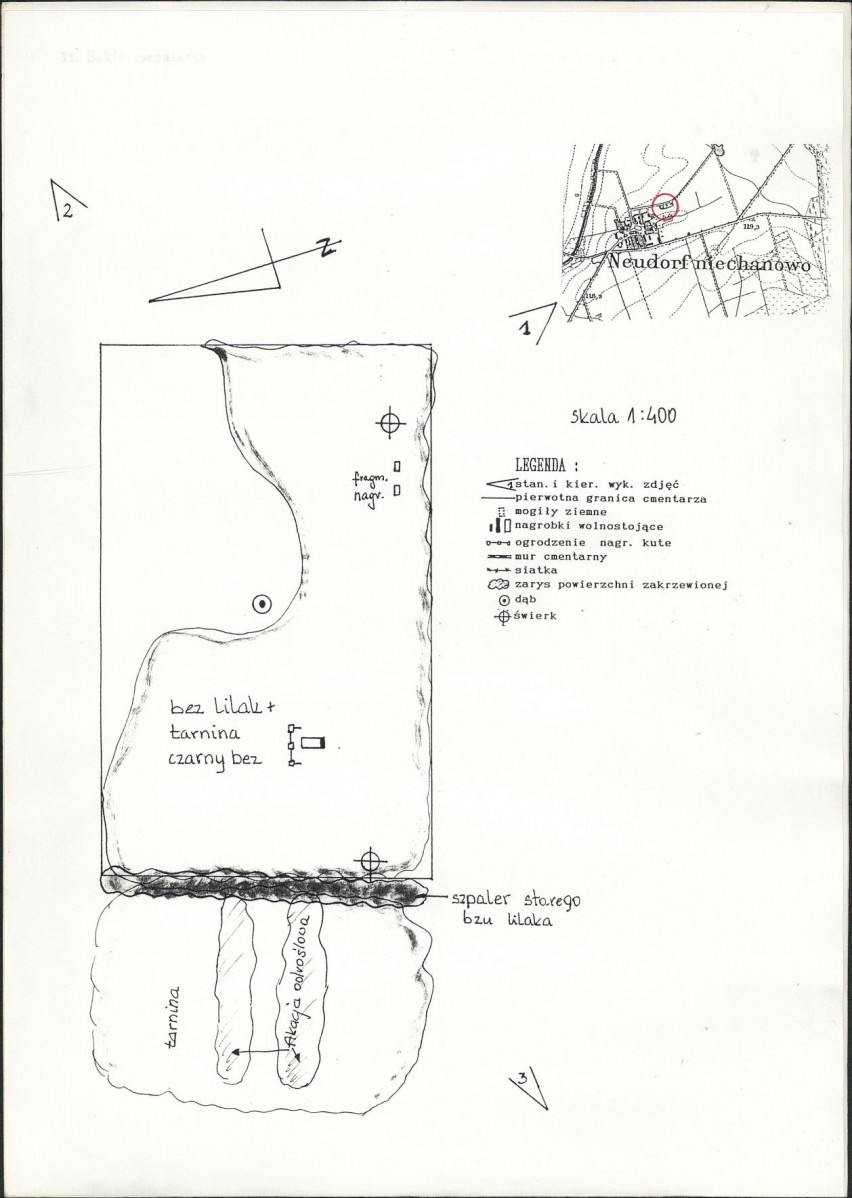 2
N
119,3
Neudorf niechanowo
118,3
1
skala 1:400
LEGENDA :
1 stan. i kier. wyk. zdjęć
pierwotna granica cmentarza
mogiły ziemne
nagrobki wolnostojące
ogrodzenie nagr. kute
mur cmentarny
siatka
zarys powierzchni zakrzewionej
dąb
świerk
fragm.
nagr.
bez lilak +
tarnina
czarny bez
szpaler starego
bzu lilaka
Akacja odroślowa
tarnina
3